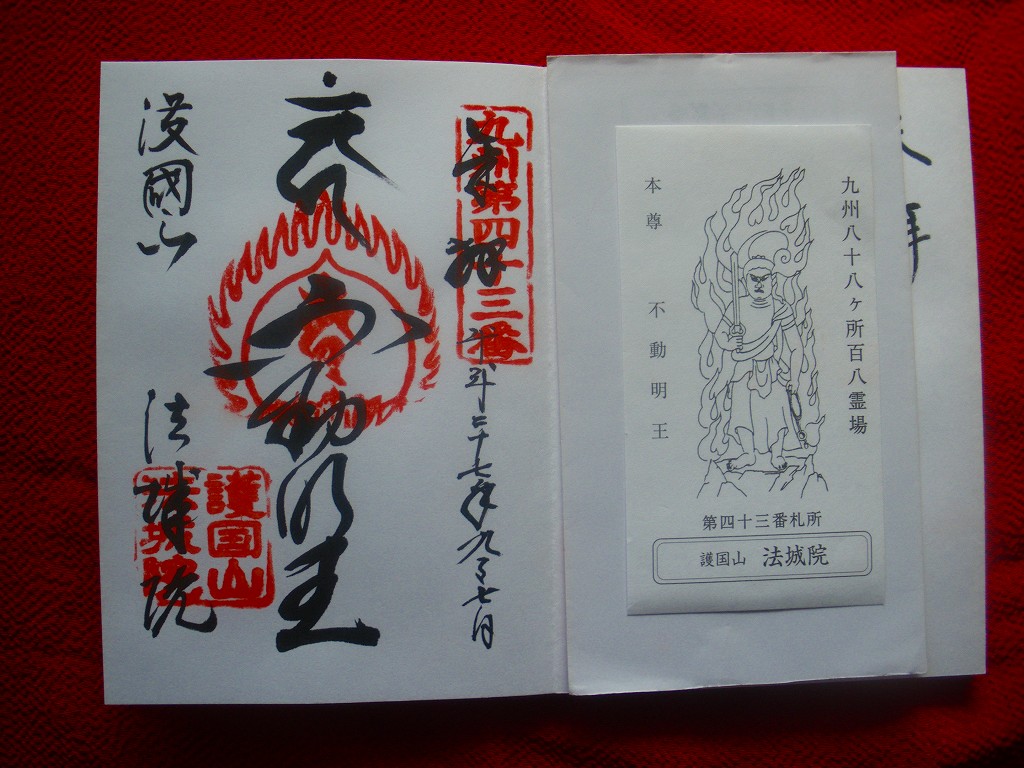 九州八十八ヶ所百八霊場
本尊 不動明王
第四十三番札所
護国山 法城院
九州第四十三番
奉拝
平成二十七年九月七日
不動明王
護國山 法城院
護国山
法城院